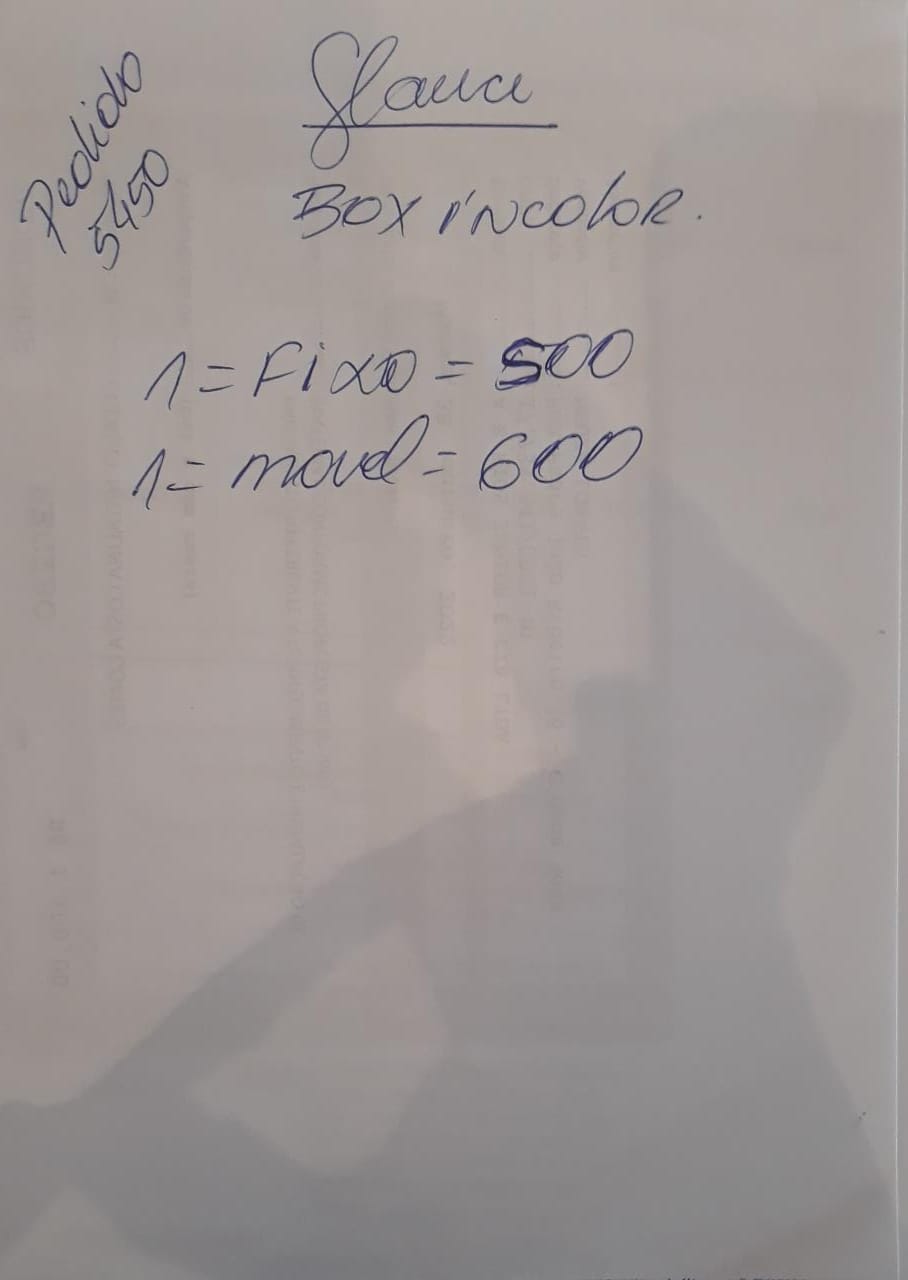 Pedido
5450
Glauci
Box incolor.
1 = Fixo = 500
1 = movel = 600